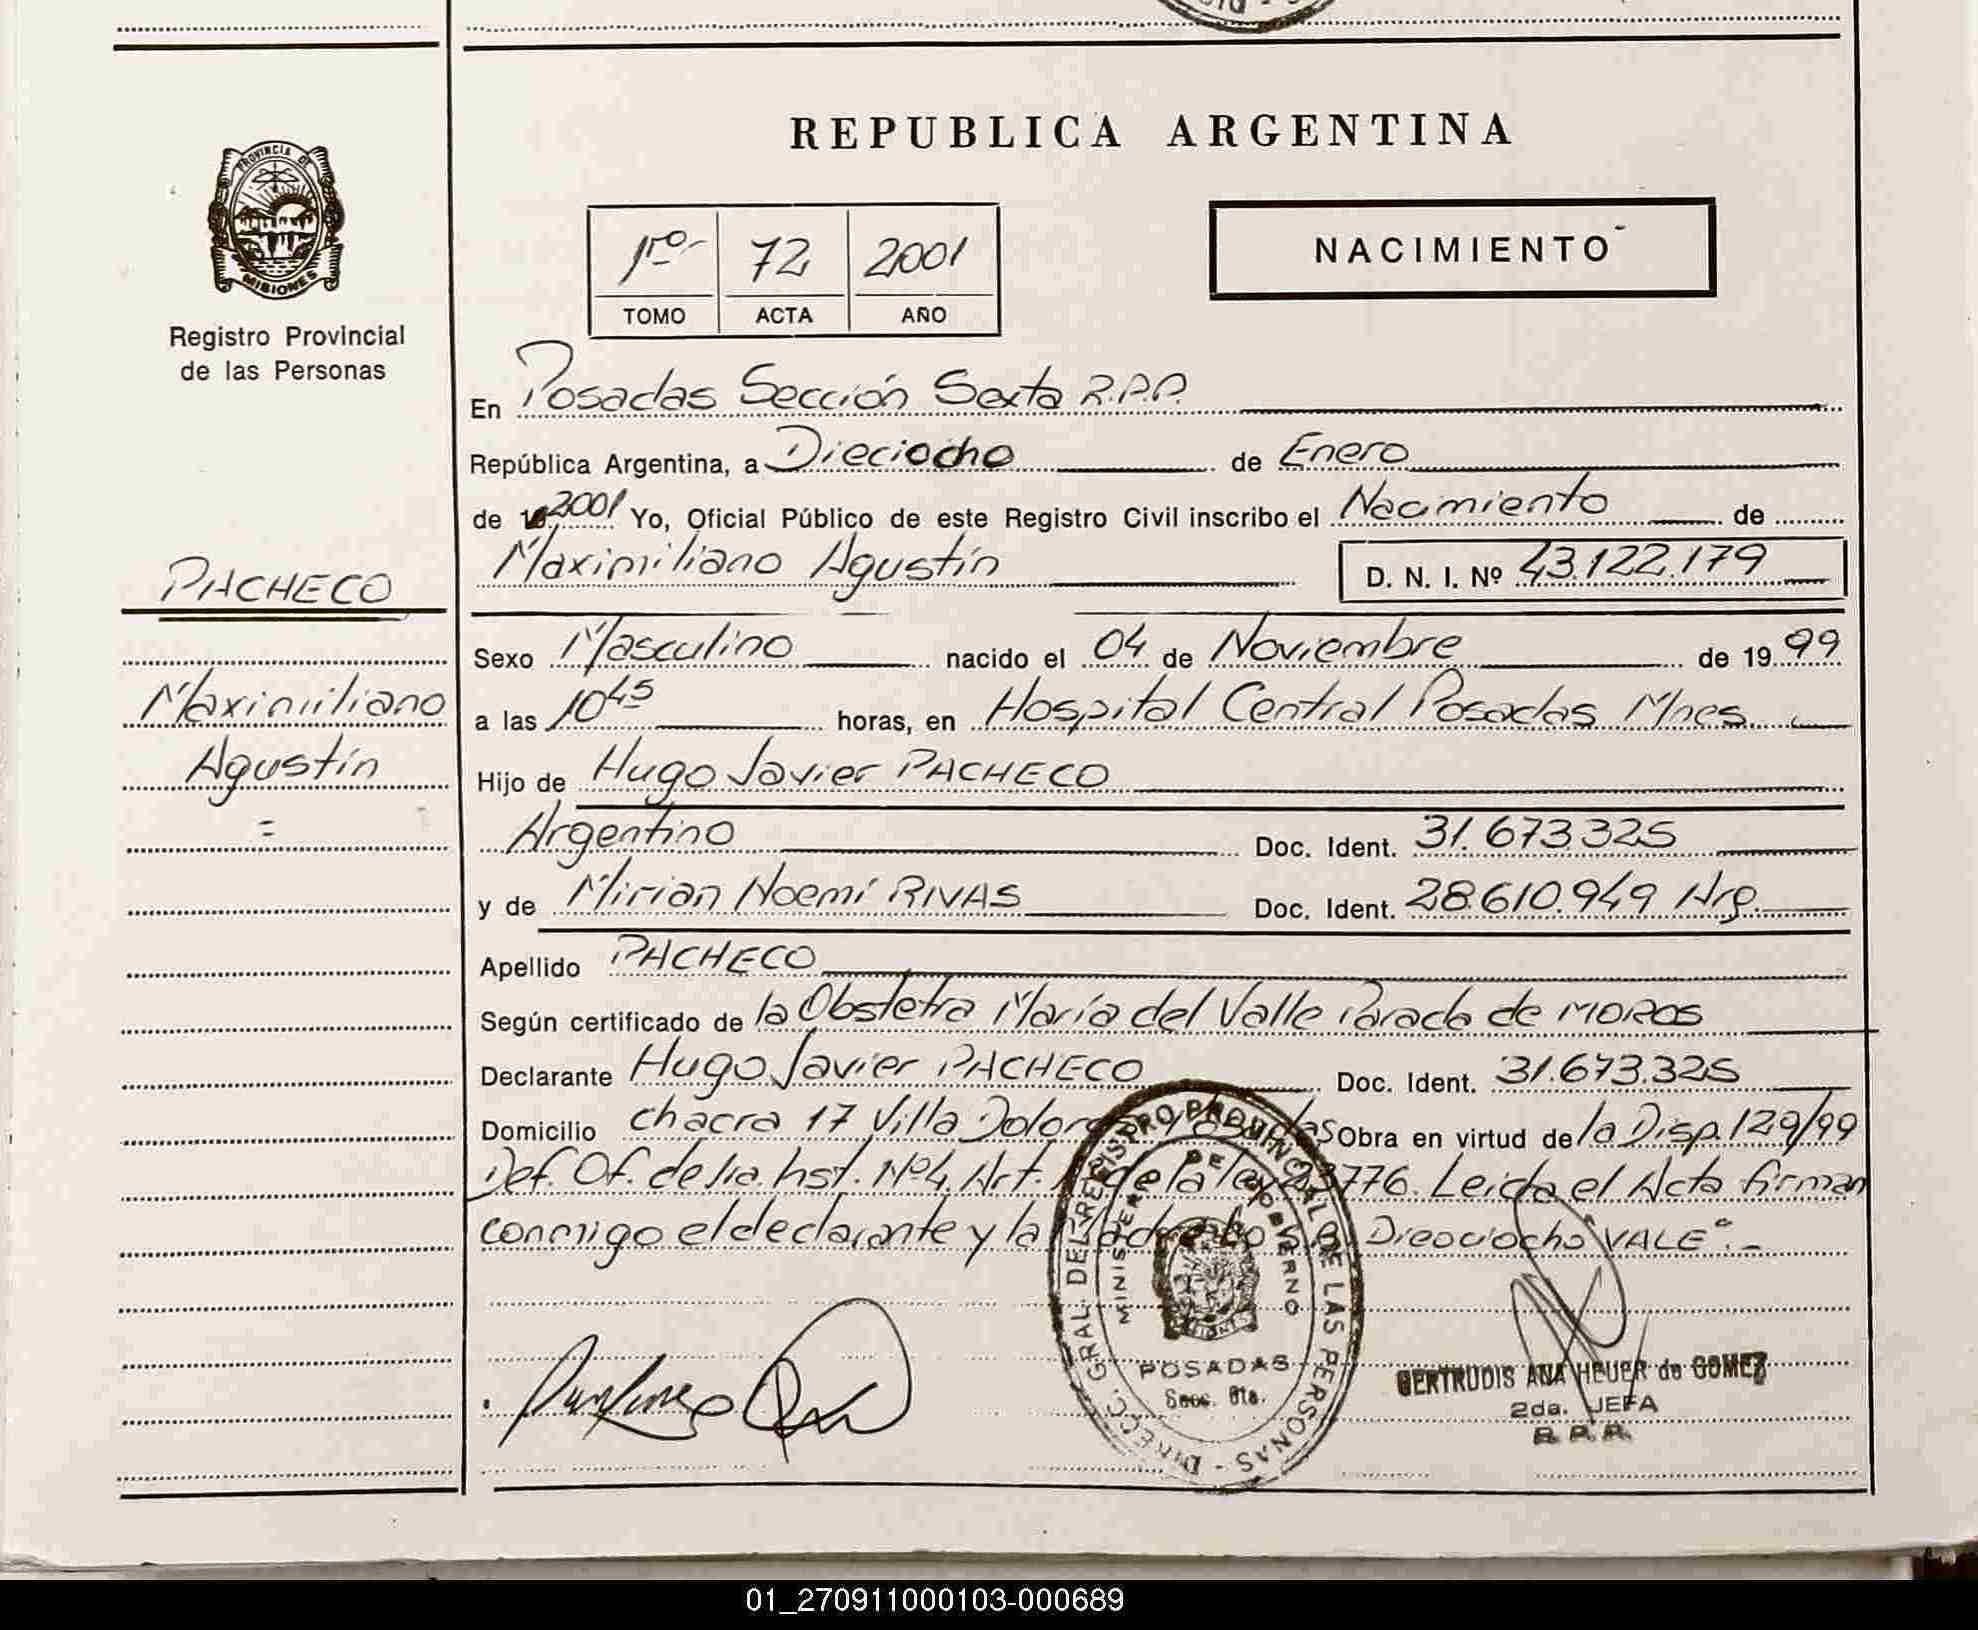 REPUBLICA ARGENTINA
PROVINCIA DE
MISIONES
Registro Provincial
de las Personas
1ro 72 2001
TOMO ACTA AÑO
NACIMIENTO
En Posadas Sección Sexta R.P.P.
República Argentina, a Dieciocho de Enero
de 2001 Yo, Oficial Público de este Registro Civil inscribo el Nacimiento de
Maximiliano Agustín D. N. I. Nº 43.122.179
PACHECO
Maximiliano
Agustín
=
Sexo Masculino nacido el 04 de Noviembre de 1999
a las 10 45 horas, en Hospital Central Posadas Mnes.
Hijo de Hugo Javier PACHECO
Argentino Doc. Ident. 31.673.325
y de Mirian Noemí RIVAS Doc. Ident. 28.610.949 Arg.
Apellido PACHECO
Según certificado de la Obstetra María del Valle Parada de MOROS
Declarante Hugo Javier PACHECO Doc. Ident. 31.673.325
Domicilio chacra 17 Villa Dolores Posadas Obra en virtud de la Disp. 129/99
Def. Of. de 1ra. Inst. Nº4, Art. de la ley 23776. Leida el Acta firman
conmigo el declarante y la Madre Dieciocho VALE".-
DIRECC. GRAL. DEL REGISTRO PROVINCIAL DE LAS PERSONAS
MINISTERIO DE GOBIERNO
POSADAS
Secc. 6ta.
GERTRUDIS ANA HEUER de GOMEZ
2da. JEFA
R. P. P.
01_270911000103-000689